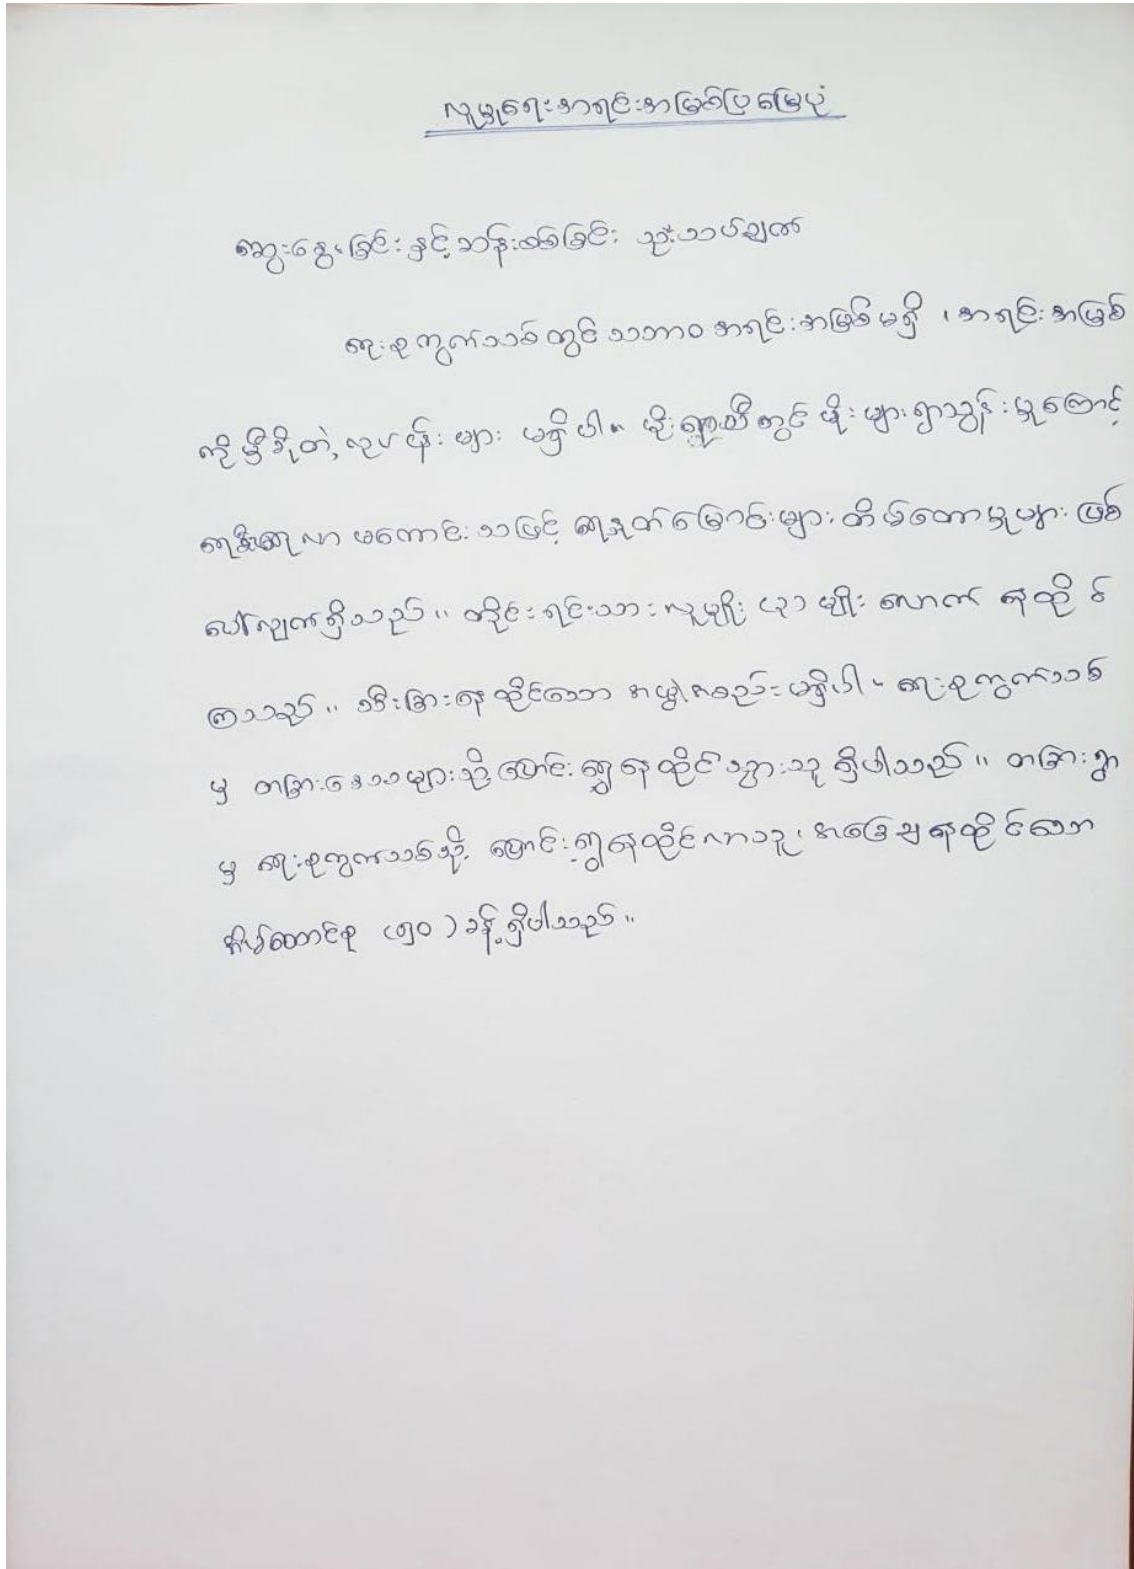 လူမှုရေးအရင်းအမြစ်ပြမြေပုံ
ဆွေးနွေးခြင်းနှင့်ဆန်းစစ်ခြင်း သုံးသပ်ချက်
ဈေးစုကွက်သစ်တွင် သဘာဝအရင်းအမြစ်မရှိ ၊ အရင်းအမြစ်
ကိုမှီခိုတဲ့ လုပငန်းများ မရှိပါ။ မိုးရာသီတွင် မိုးများရွာသွန်းမှုကြောင့်
ရေစီးရေလာ မကောင်းသဖြင့် ရေနုတ်မြောင်းများ တိမ်ကောမှုများ ဖြစ်
ပေါ်လျက်ရှိသည်။ တိုင်းရင်းသားလူမျိုး (၃) မျိုး လောက် နေထိုင်
ကြသည်။ သီးခြားနေထိုင်သော အဖွဲ့အစည်း မရှိပါ။ ဈေးစုကွက်သစ်
မှ တခြားဒေသများသို့ ပြောင်းရွှေ့နေထိုင်သွားသူ ရှိပါသည်။ တခြားရွာ
မှ ဈေးစုကွက်သစ်သို့ ပြောင်းရွှေ့နေထိုင်လာသူ၊ အခြေချနေထိုင်သော
အိမ်ထောင်စု (၅၀) ခန့် ရှိပါသည်။